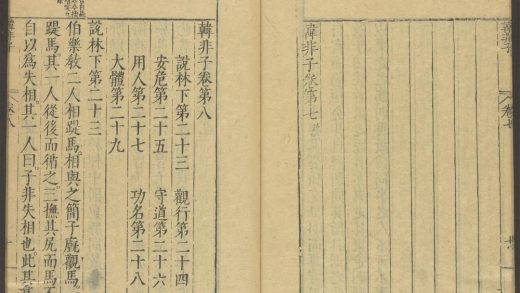 韓非子卷第七
韓非子卷第八
說林下第二十三　觀行第二十四
安危第二十五　守道第二十六
用人第二十七　功名第二十八
大體第二十九
說林下第二十三
伯樂教二人相踶馬相與之簡子廄觀馬
踶馬其一人從後而循之三撫其尻而馬不
自以爲失相其一人曰子非失相也此其